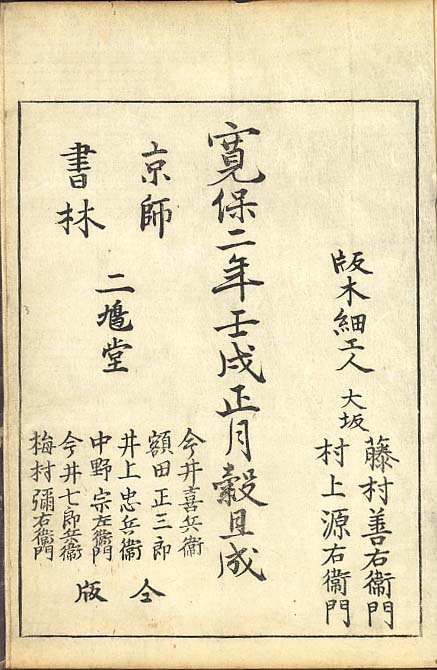 版木細工人 大坂
藤村善右衞門
村上源右衞門
寛保二年壬戌正月穀旦成
京師
書林
二鳩堂
今井喜兵衞
額田正三郎
井上忠兵衞
中野宗左衞門
今井七郎兵衞
梅村彌右衞門
仝
版